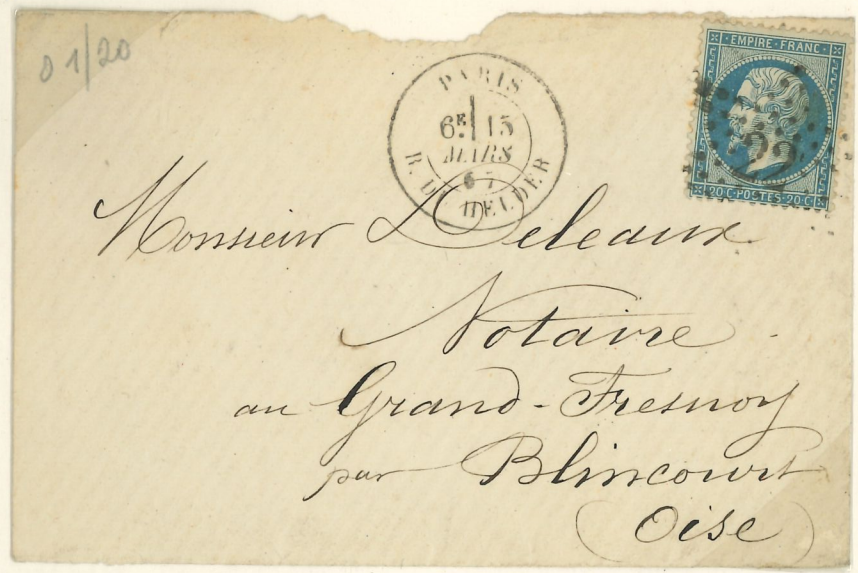 0 1/20
PARIS
6E 15
MARS
67
R. DU HELDER
EMPIRE · FRANC ·
22
20·C·POSTES·20·C
Monsieur Deleaux
Notaire
au Grand-Fresnoy
par Blincourt
(Oise)